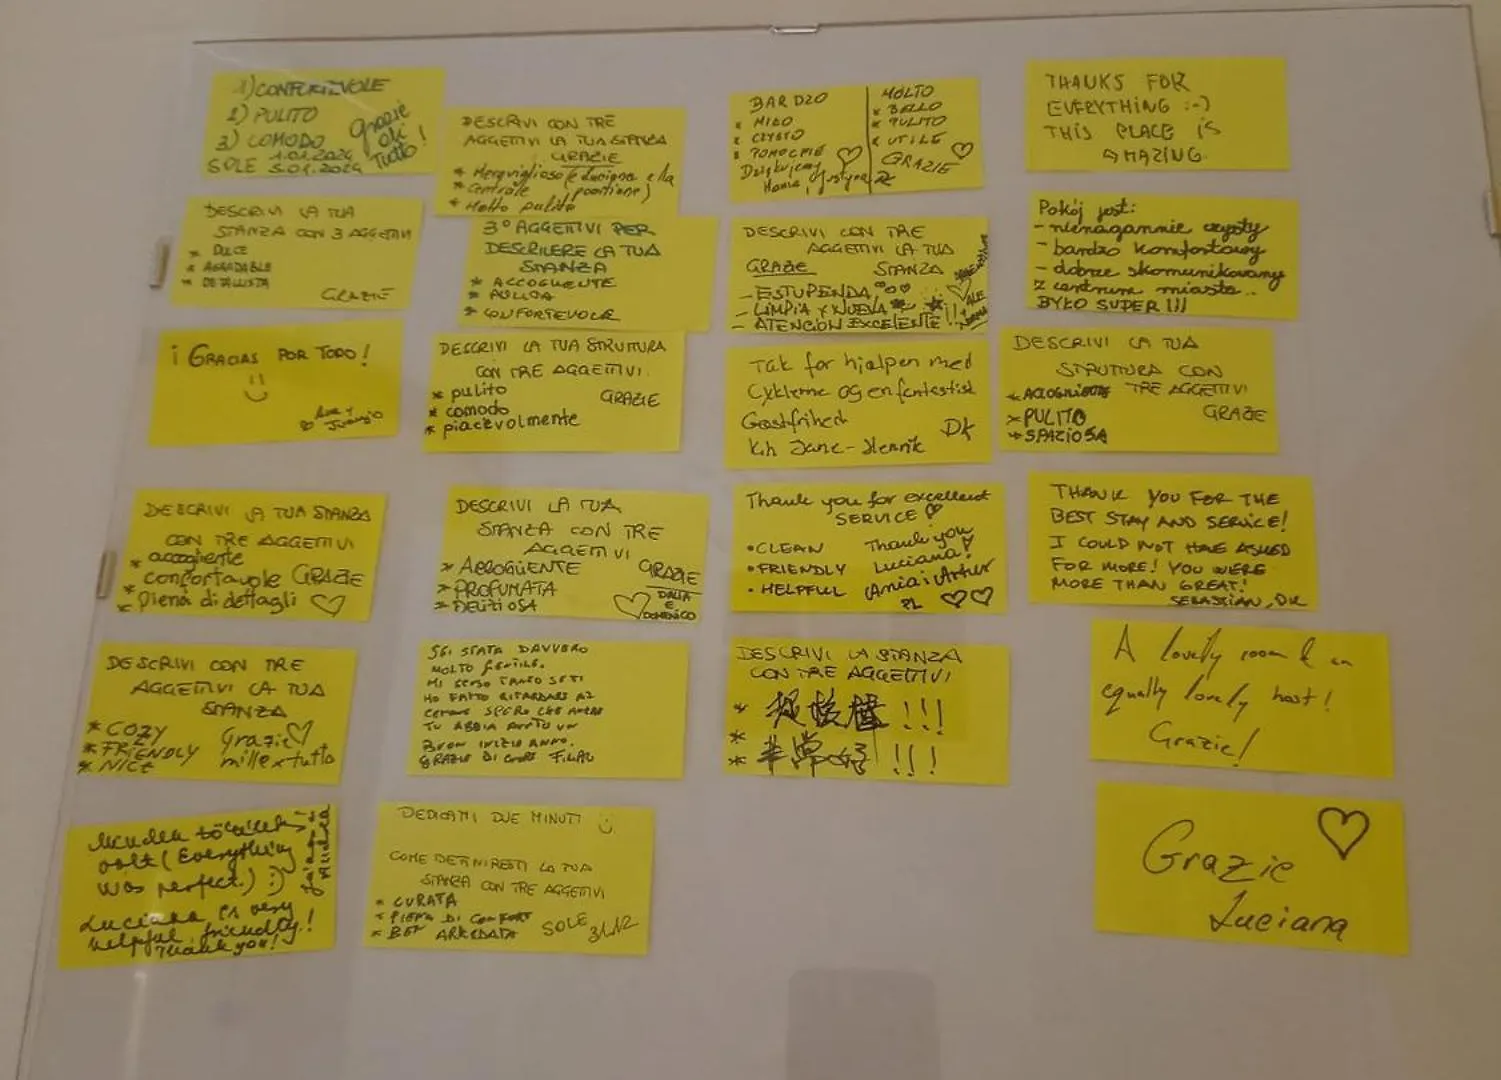 1) CONFORTEVOLE
2) PULITO
3) COMODO
grazie
di
Tutto!
SOLE 1.01.2024
5.01.2024
DESCRIVI CON TRE
AGGETTIVI LA TUA STANZA
GRAZIE
* Meraviglioso (è Luciana e la
* Centrale posizione)
* Molto pulito
BARDZO
* MIŁO
* CZYSTO
* POMOCNIE
Dziękujemy
Hania,
MOLTO
* BELLO
* PULITO
* UTILE
GRAZIE
THANKS FOR
EVERYTHING :-)
THIS PLACE IS
AMAZING
DESCRIVI LA TUA
STANZA CON 3 AGGETTIVI
* DULCE
* AGRADABLE
* DETALLISTA
GRAZIE
3° AGGETTIVI PER
DESCRIVERE LA TUA
STANZA
* ACCOGLIENTE
* PULITA
* CONFORTEVOLE
DESCRIVI CON TRE
AGGETTIVI LA TUA
GRAZIE STANZA
- ESTUPENDA
- LIMPIA Y NUEVA
- ATENCIÓN EXCELENTE !!
Pokój jest:
- nienagannie czysty
- bardzo komfortowy
- dobrze skomunikowany
z centrum miasta..
BYŁO SUPER!!!
¡GRACIAS POR TODO!
DESCRIVI LA TUA STRUTTURA
CON TRE AGGETTIVI.
* pulito
GRAZIE
* comodo
* piacevolmente
Tak for hjælpen med
Cyklerne og en fantastisk
Gæstfrihed
Kh Jane-Henrik
DK
DESCRIVI LA TUA
STRUTTURA CON
* ACCOGLIENTE TRE AGGETTIVI
* PULITA GRAZIE
* SPAZIOSA
DESCRIVI LA TUA STANZA
CON TRE AGGETTIVI
* accogliente
* confortavole GRAZIE
* Piena di dettagli
DESCRIVI LA TUA
STANZA CON TRE
AGGETTIVI
* ACCOGLIENTE GRAZIE
* PROFUMATA
* DELIZIOSA
DALIA
E
DOMENICO
Thank you for excellent
SERVICE
• CLEAN
• FRIENDLY
• HELPFUL
Thank you
Luciana!
(Ania i Artur
PL
THANK YOU FOR THE
BEST STAY AND SERVICE!
I COULD NOT HAVE ASKED
FOR MORE! YOU WERE
MORE THAN GREAT!
SEBASTIAN, DK
DESCRIVI CON TRE
AGGETTIVI LA TUA
STANZA
* COZY
* FRIENDLY
* NICE
Grazie
mille x tutto
SEI STATA DAVVERO
MOLTO GENTILE.
MI SCUSO TANTO SE TI
HO FATTO RITARDARE AL
CENONE SPERO CHE ANCHE
TU ABBIA AVUTO UN
BUON INIZIO ANNO.
GRAZIE DI CUORE
DESCRIVI LA STANZA
CON TRE AGGETTIVI
*
!!!
*
* 非常好 !!!
A lovely room & an
equally lovely host!
Grazie!
Minden tökéletes
volt (Everything
was perfect.) :)
Luciana is very
helpful, friendly!
Thank you!
DEDICAMI DUE MINUTI
COME DEFINIRESTI LA TUA
STANZA CON TRE AGGETTIVI
* CURATA
* PIENA DI COMFORT
* BEN ARREDATA
SOLE 31.12
Grazie
Luciana